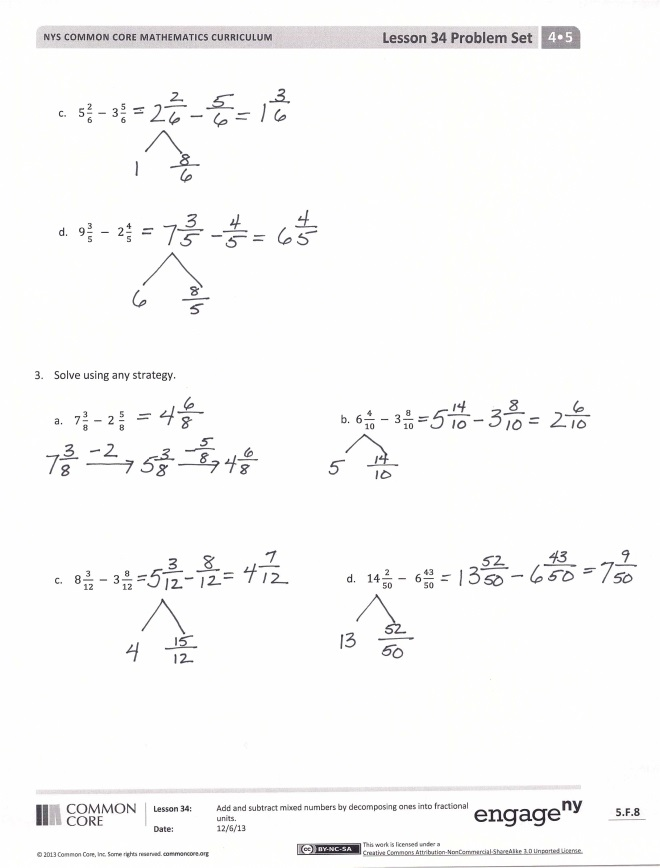 NYS COMMON CORE MATHEMATICS CURRICULUM Lesson 34 Problem Set 4•5
c. 5 2/6 − 3 5/6 = 2 2/6 − 5/6 = 1 3/6
1 8/6
d. 9 3/5 − 2 4/5 = 7 3/5 − 4/5 = 6 4/5
6 8/5
3. Solve using any strategy.
a. 7 3/8 − 2 5/8 = 4 6/8
7 3/8 −2→ 5 3/8 −5/8→ 4 6/8
b. 6 4/10 − 3 8/10 = 5 14/10 − 3 8/10 = 2 6/10
5 14/10
c. 8 3/12 − 3 8/12 = 5 3/12 − 8/12 = 4 7/12
4 15/12
d. 14 2/50 − 6 43/50 = 13 52/50 − 6 43/50 = 7 9/50
13 52/50
COMMON CORE
Lesson 34: Add and subtract mixed numbers by decomposing ones into fractional
units.
Date: 12/6/13
engage ny
5.F.8
© 2013 Common Core, Inc. Some rights reserved. commoncore.org
(cc) BY-NC-SA
This work is licensed under a
Creative Commons Attribution-NonCommercial-ShareAlike 3.0 Unported License.